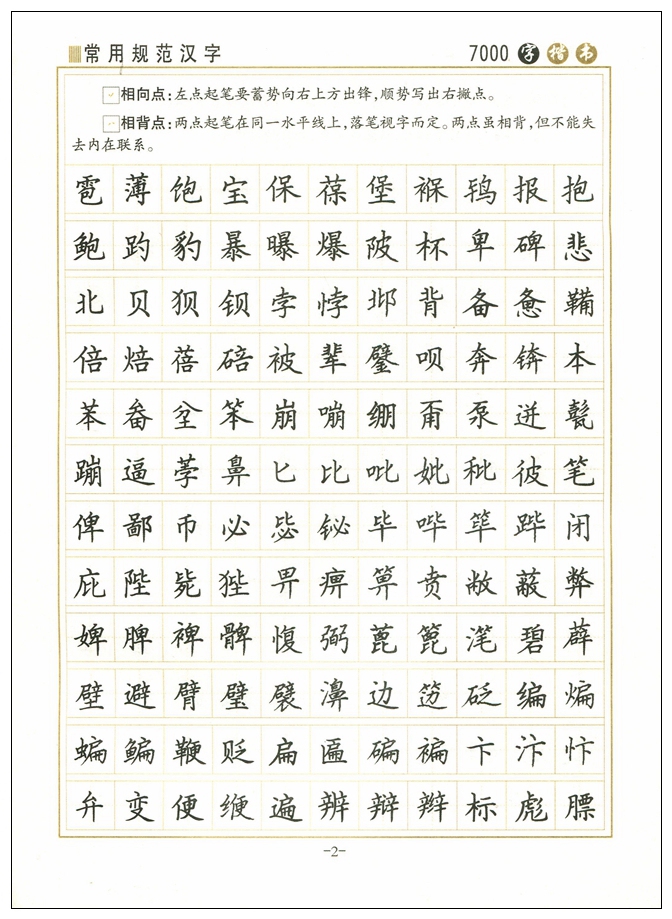 常用规范汉字 7000字楷书
相向点:左点起笔要蓄势向右上方出锋,顺势写出右撇点。
相背点:两点起笔在同一水平线上,落笔视字而定。两点虽相背,但不能失
去内在联系。
雹薄饱宝保葆堡褓鸨报抱
鲍趵豹暴曝爆陂杯卑碑悲
北贝狈钡孛悖邶背备惫鞴
倍焙蓓碚被辈鐾呗奔锛本
苯畚坌笨崩嘣绷甭泵迸甏
蹦逼荸鼻匕比吡妣秕彼笔
俾鄙币必毖铋毕哔筚跸闭
庇陛毙狴畀痹箅贲敝蔽弊
婢脾裨髀愎弼蓖篦滗碧薜
壁避臂璧襞濞边笾砭编煸
蝙鳊鞭贬扁匾碥褊卞汴忭
弁变便缏遍辨辩辫标彪膘
-2-